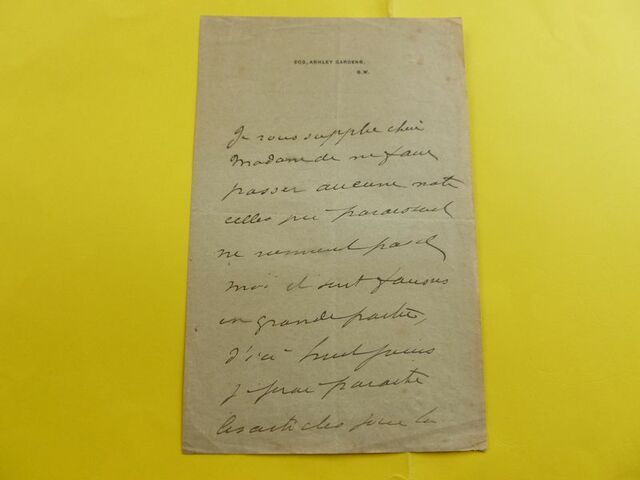 203, ASHLEY GARDENS,
S.W.
Je vous supplie chère
Madame de ne faire
passer aucune note
celles qui paraissent
ne viennent pas de
moi et sont fausses
en grande partie,
d'ici huit jours
je ferai paraitre
les articles pour la